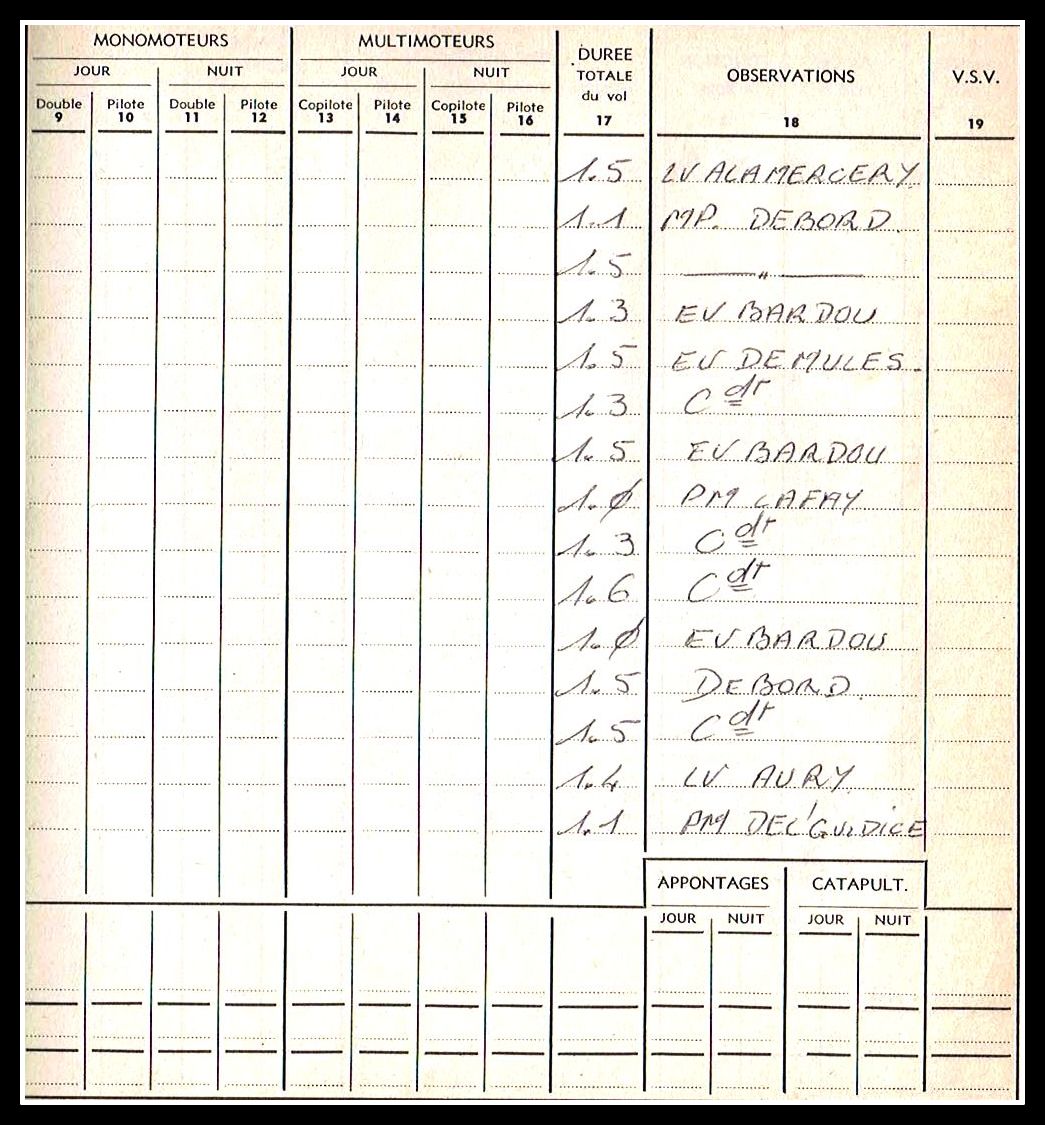 MONOMOTEURS MULTIMOTEURS DUREE TOTALE du vol OBSERVATIONS V.S.V.
JOUR NUIT JOUR NUIT
Double Pilote Double Pilote Copilote Pilote Copilote Pilote
9 10 11 12 13 14 15 16 17 18 19
1.5 LV ALAMERCERY
1.1 MP. DEBORD.
1.5 ——— " ———
1.3 EV BARDOU
1.5 EV DEMULES.
1.3 Cdt
1.5 EV BARDOU
1.Ø PM LAFAY
1.3 Cdt
1.6 Cdt
1.Ø EV BARDOU
1.5 DEBORD.
1.5 Cdt
1.4 LV AURY
1.1 PM DEL'GUIDICE
APPONTAGES CATAPULT.
JOUR NUIT JOUR NUIT